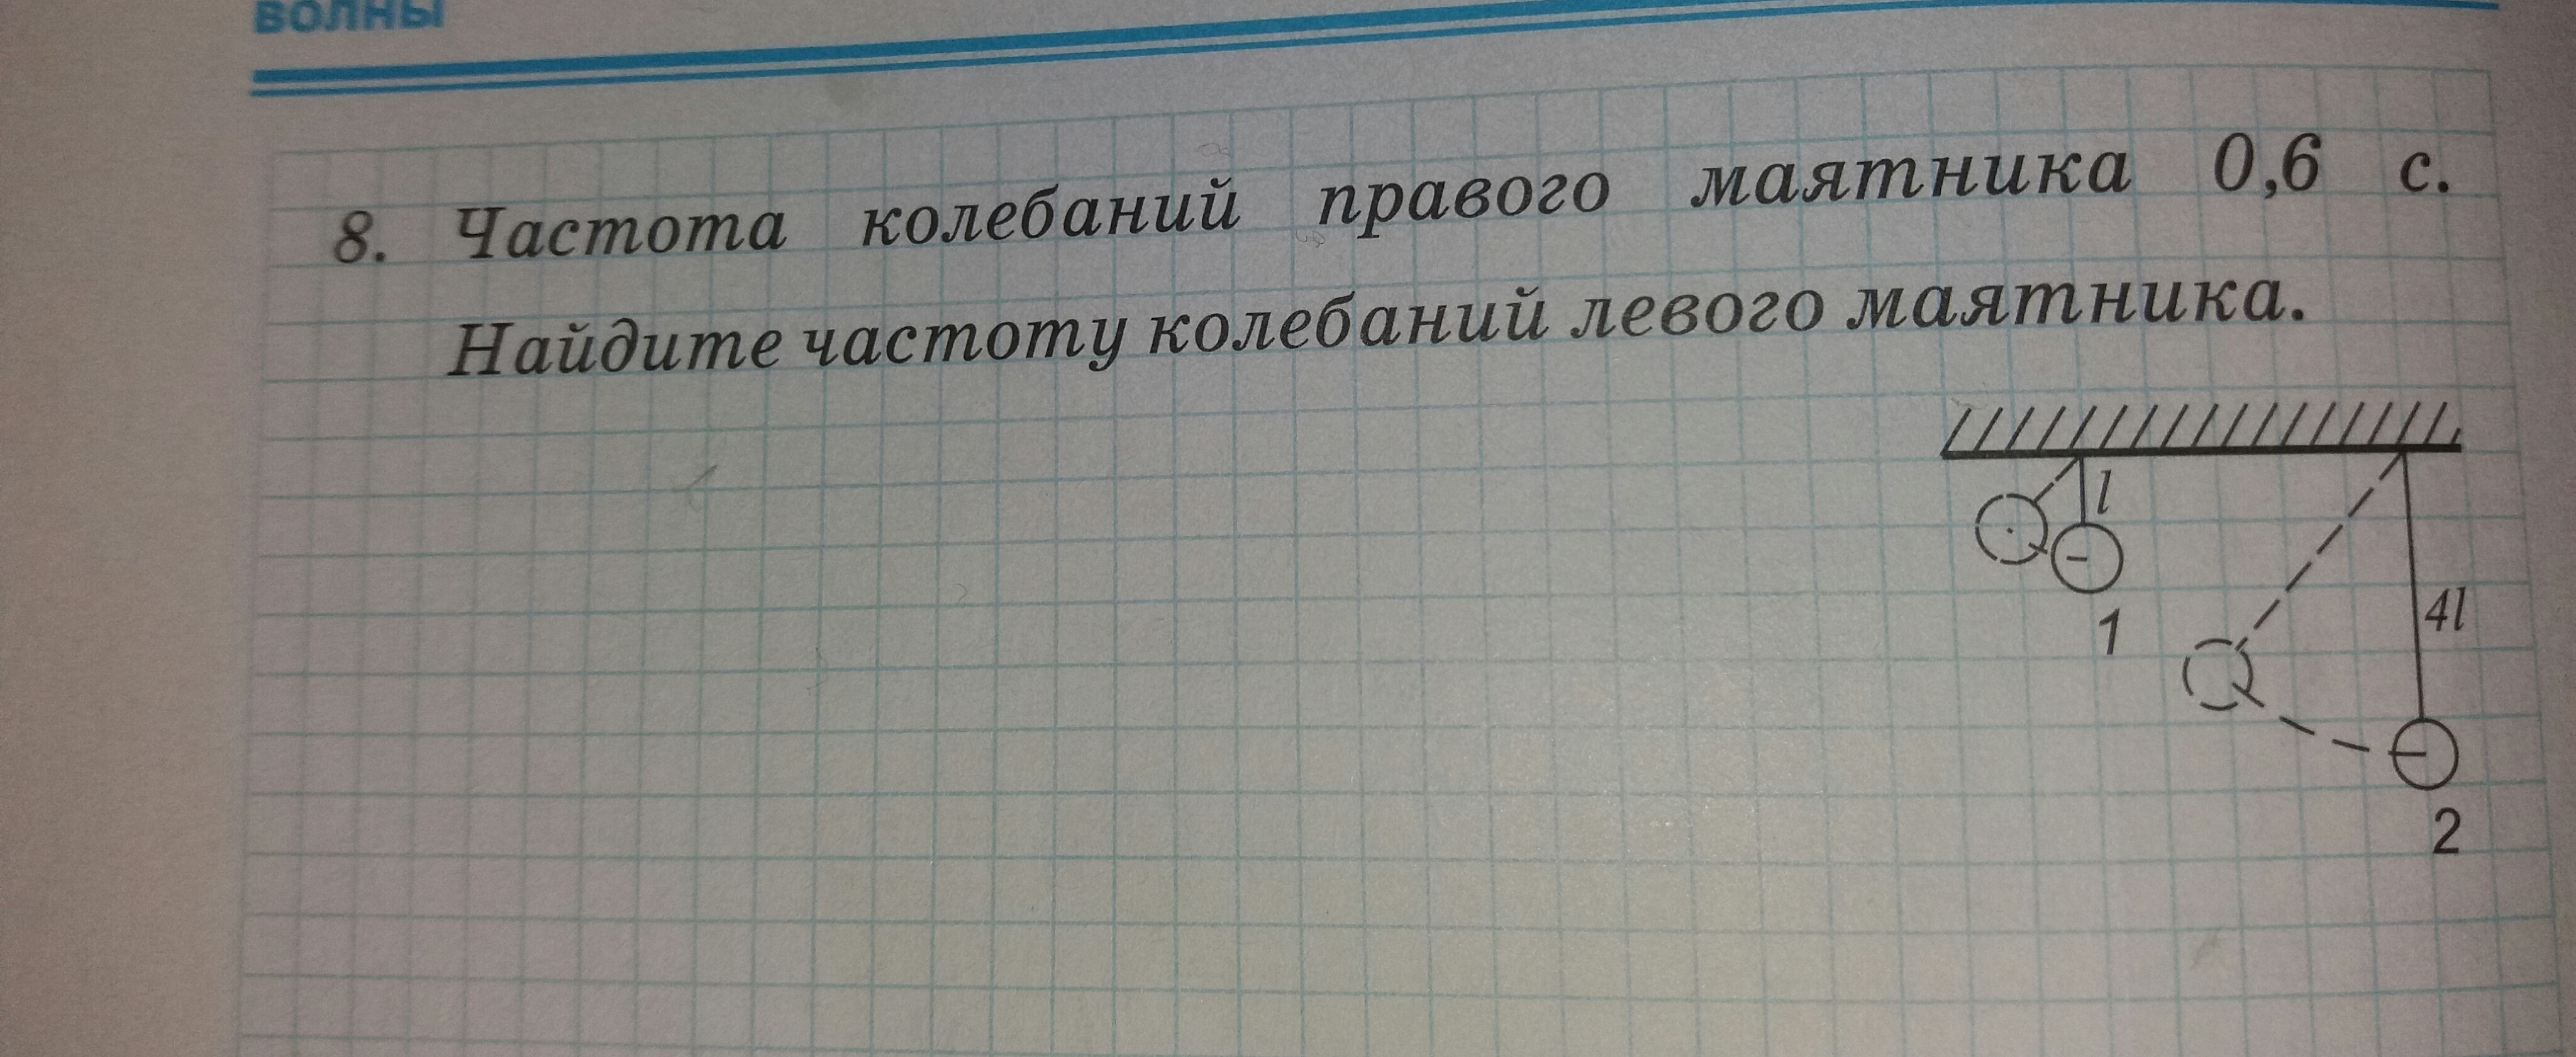 ВОЛНЫ
8. Частота колебаний правого маятника 0,6 с.
Найдите частоту колебаний левого маятника.
l
4l
1
2